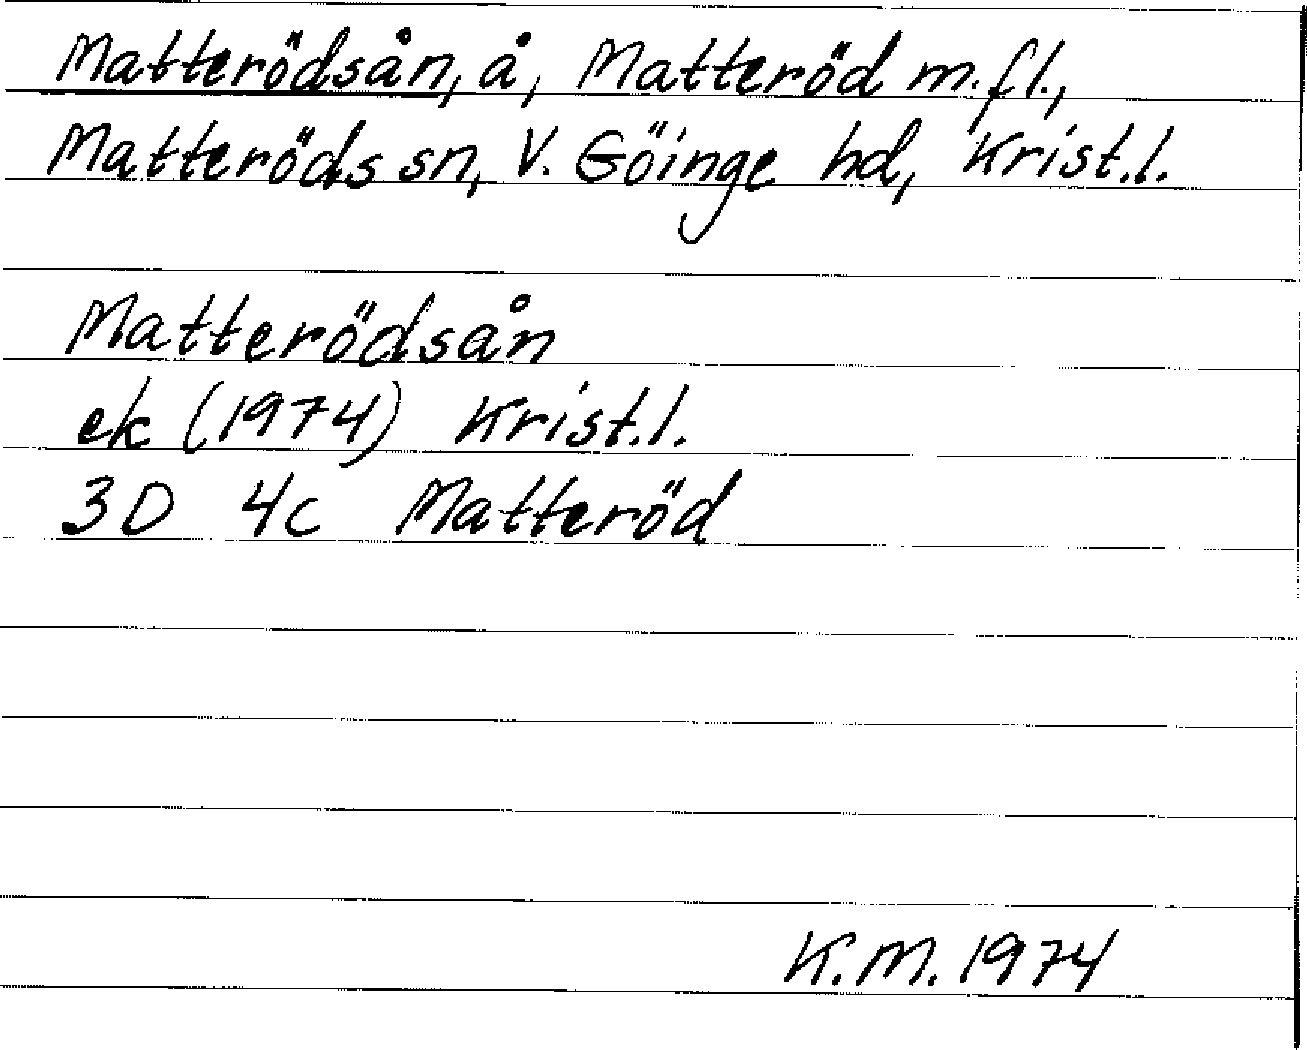 Matterödsån, å, Matteröd m.fl.,
Matteröds sn, V. Göinge hd, Krist.l.
Matterödsån
ek (1974) Krist.l.
3D 4c Matteröd
K.M. 1974